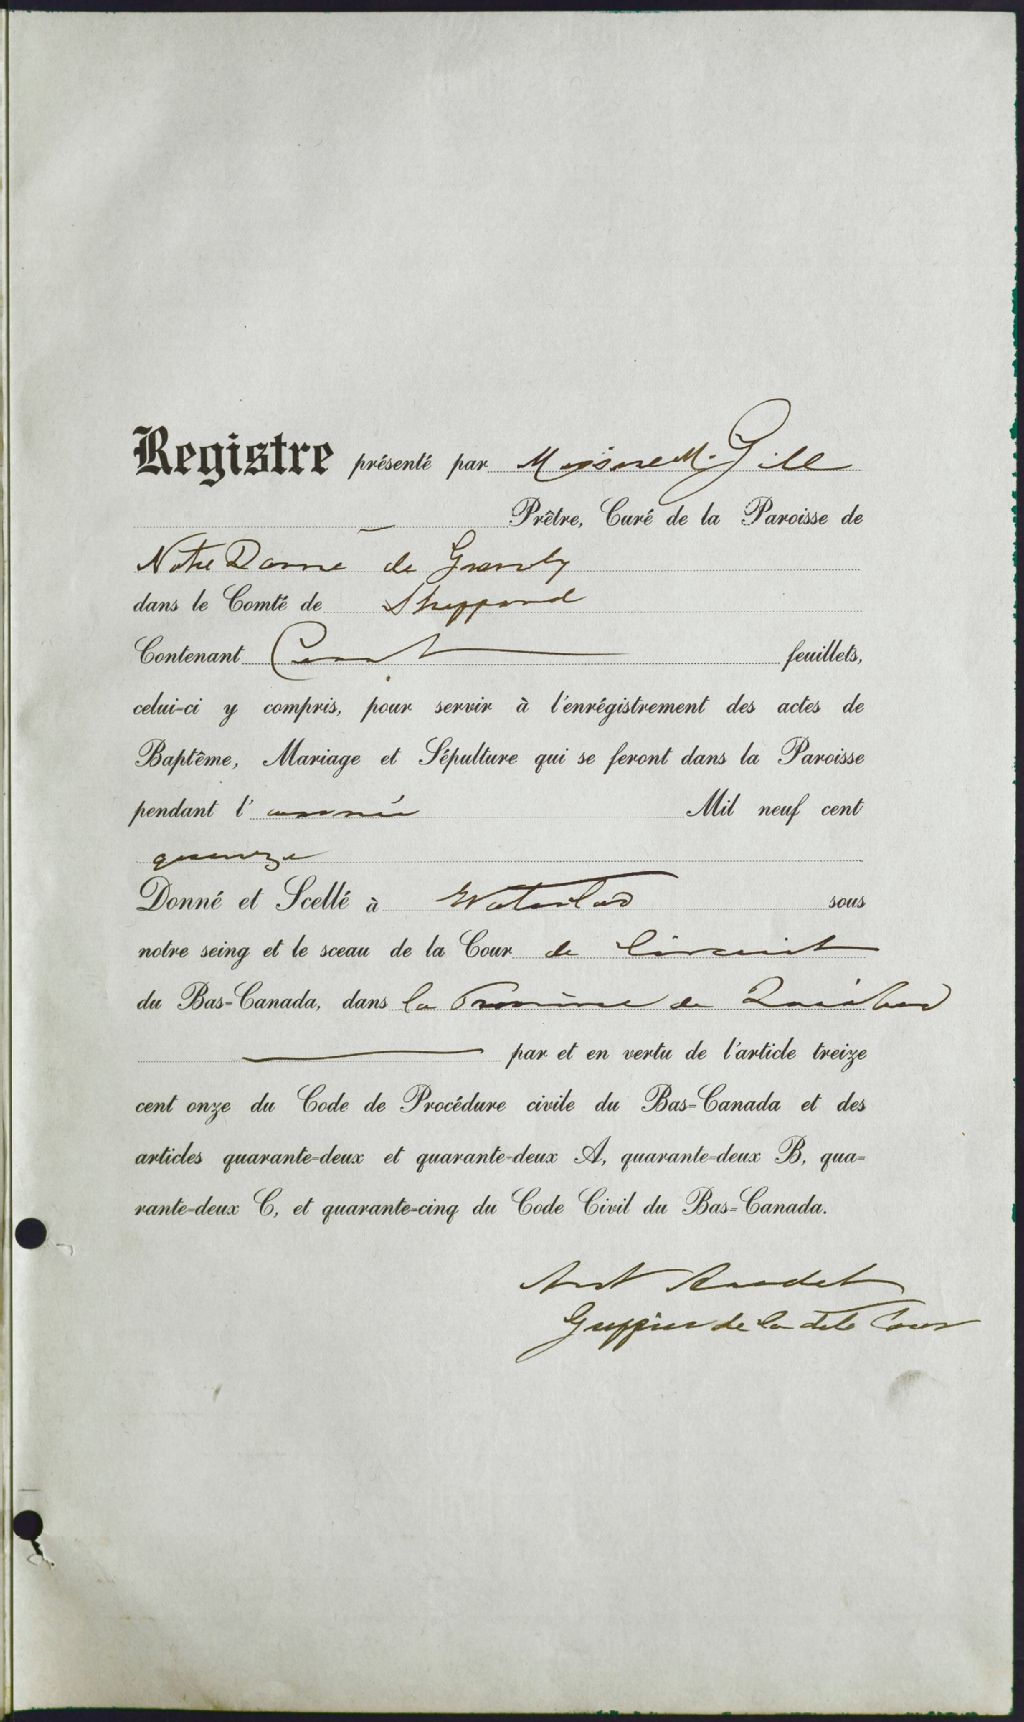 Registre présenté par Messire M. Gill
Prêtre, Curé de la Paroisse de
Notre Dame de Granby
dans le Comté de Sheppard
Contenant Cent feuillets,
celui-ci y compris, pour servir à l'enrégistrement des actes de
Baptême, Mariage et Sépulture qui se feront dans la Paroisse
pendant l' année Mil neuf cent
quinze
Donné et Scellé à Waterloo sous
notre seing et le sceau de la Cour de Circuit
du Bas-Canada, dans la Province de Québec
par et en vertu de l'article treize
cent onze du Code de Procédure civile du Bas-Canada et des
articles quarante-deux et quarante-deux A, quarante-deux B, qua-
rante-deux C, et quarante-cinq du Code Civil du Bas-Canada.
Audet
Greffier de la dite Cour